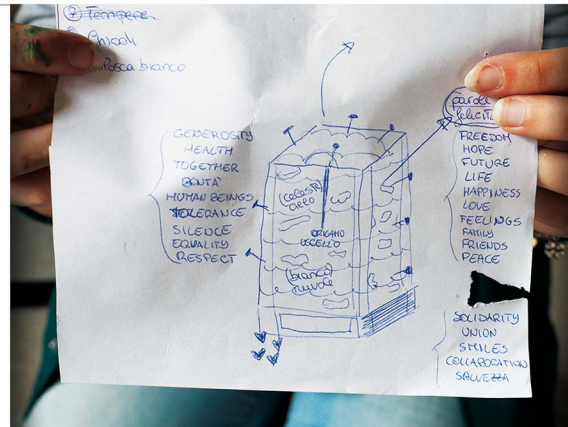 Tempere
Chiodi
Posca bianco
parole
felicità
GENEROSITY
HEALTH
TOGETHER
BONTÀ
HUMAN BEINGS
TOLERANCE
SILENCE
EQUALITY
RESPECT
celeste
cielo
ORIGAMO
UCCELLO
(bianco)
nuvole
FREEDOM
HOPE
FUTURE
LIFE
HAPPINESS
LOVE
FEELINGS
FAMILY
FRIENDS
PEACE
SOLIDARITY
UNION
SMILES
COLLABORATION
SALVEZZA